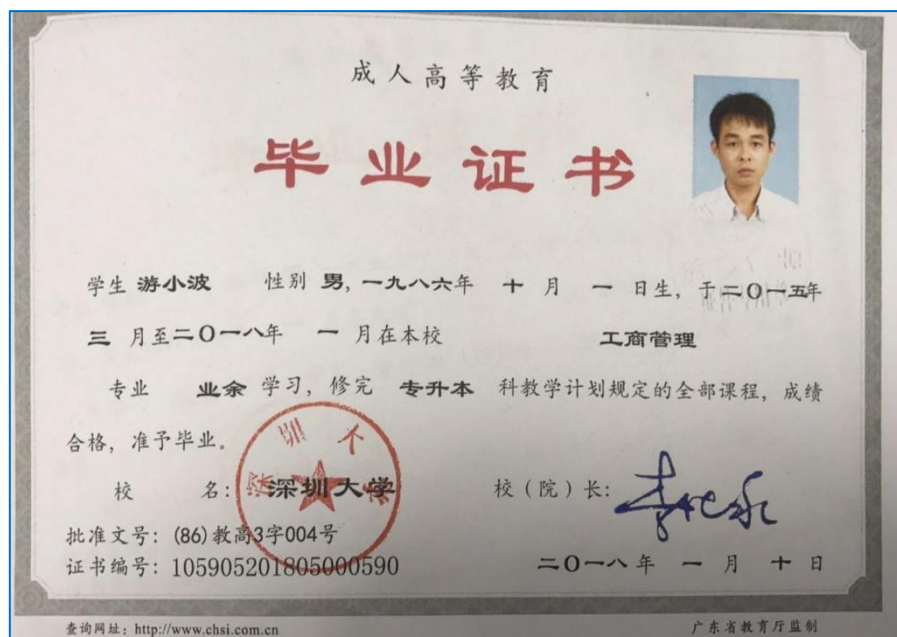 成人高等教育
毕业证书
学生 游小波 性别 男，一九八六年 十 月 一 日生，于二〇一五年
三 月至二〇一八年 一 月在本校 工商管理
专业 业余 学习，修完 专升本 科教学计划规定的全部课程，成绩
合格，准予毕业。
校 名：深圳大学 校（院）长：
批准文号：(86)教高3字004号
证书编号：105905201805000590 二〇一八年 一 月 十 日
查询网址：http://www.chsi.com.cn 广东省教育厅监制